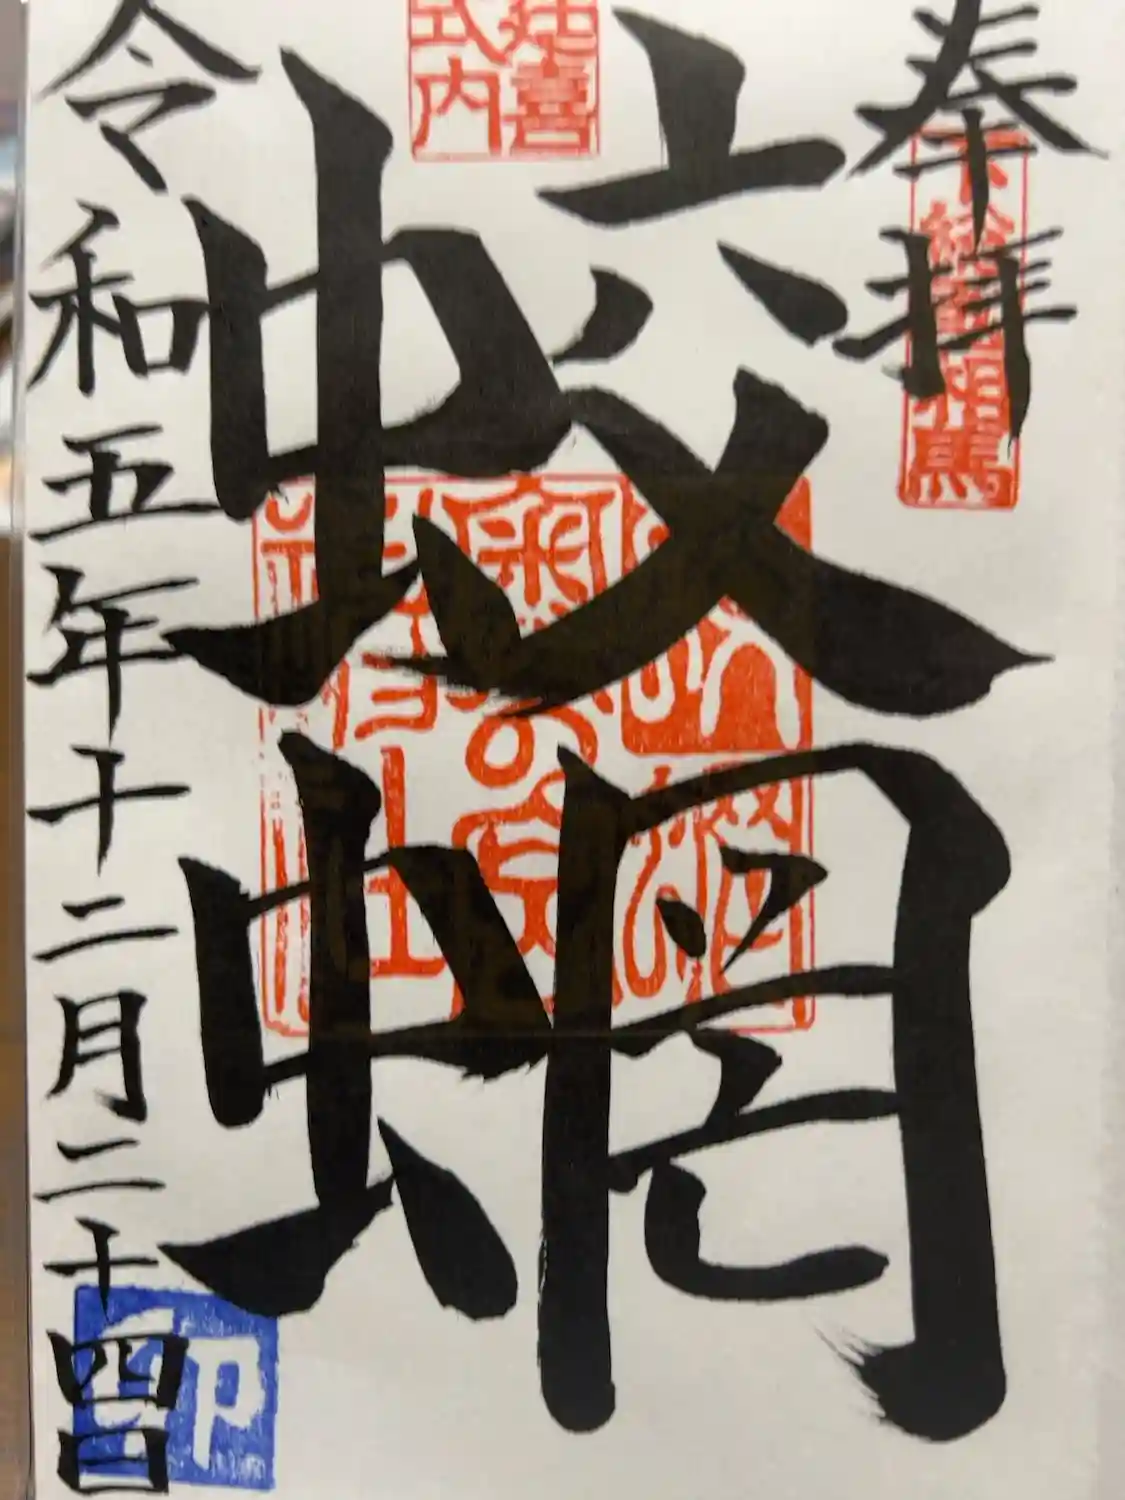 奉拝
下総國相馬
延喜式内
蛟蝄
令和五年十二月二十四日
卯